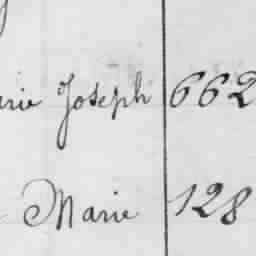 Joseph 662
Marie 128